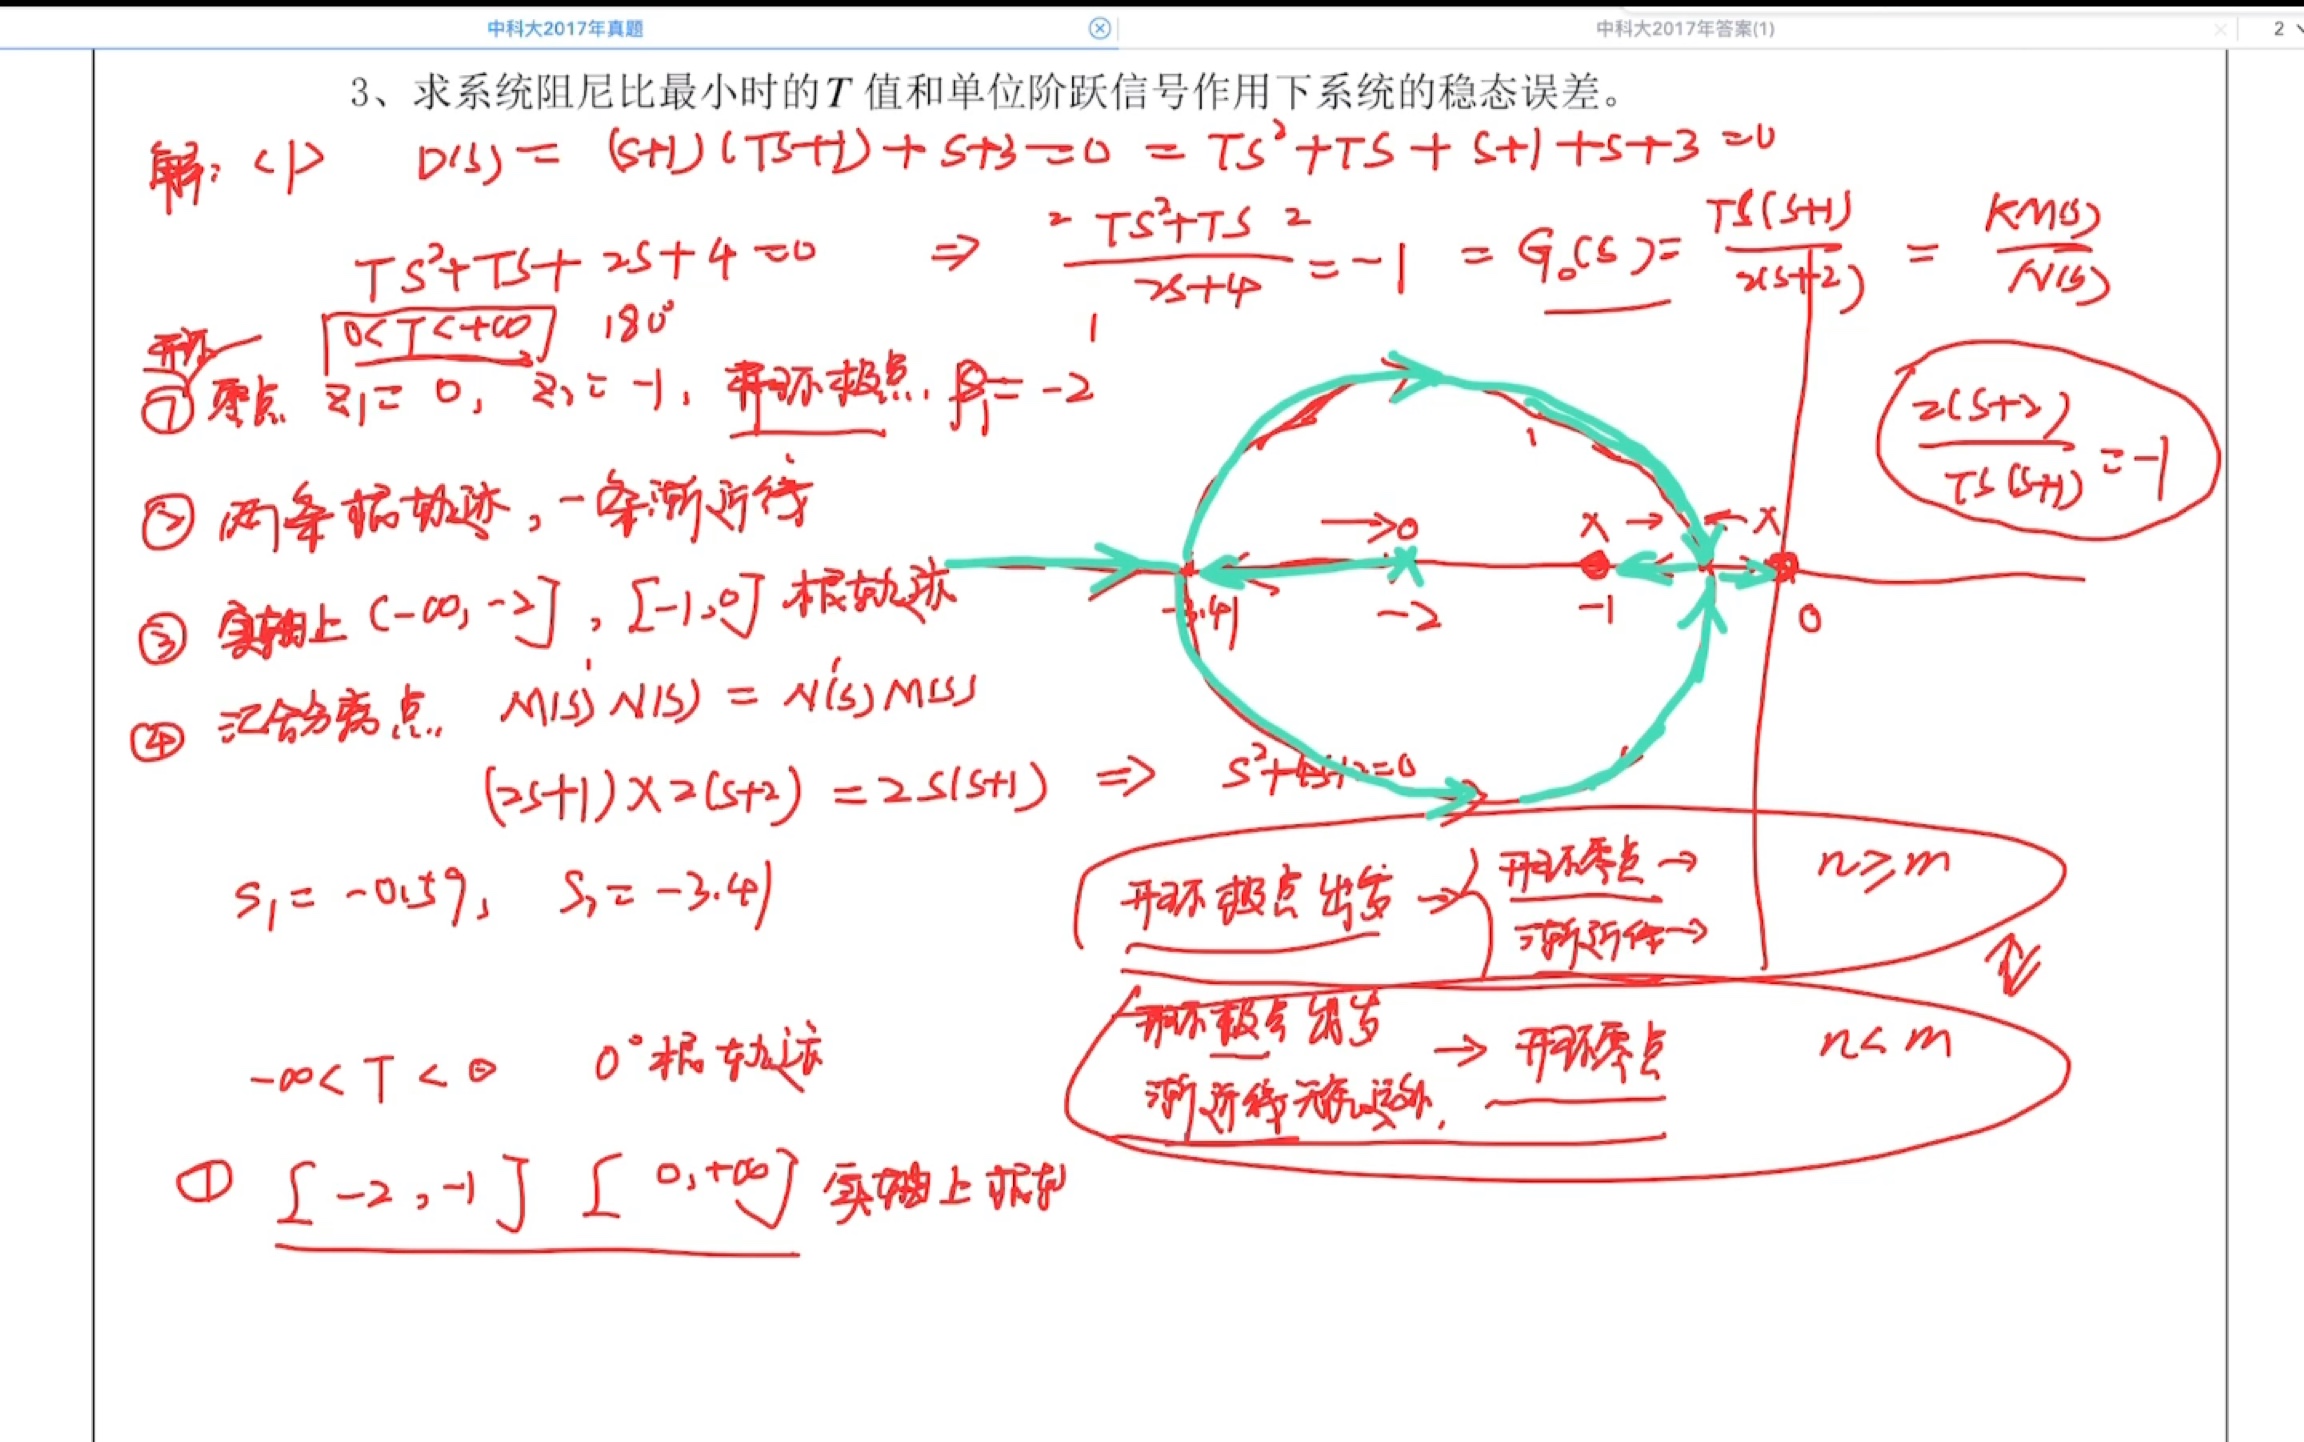 中科大2017年真题
中科大2017年答案(1)
2
3、求系统阻尼比最小时的T 值和单位阶跃信号作用下系统的稳态误差。
解: <1> D(s) = (s+1)(Ts+1)+s+3=0 = Ts²+Ts+s+1+s+3=0
Ts²+Ts+2s+4=0 ⇒ Ts²+Ts / 2s+4 = -1 = G₀(s) = Ts(s+1) / 2(s+2) = KM(s) / N(s)
0<T<+∞ 180°
开环
① 零点 z₁=0, z₂=-1, 开环极点 P₁=-2
2(s+2) / Ts(s+1) = -1
② 两条根轨迹, 一条渐近线
③ 实轴上 (-∞, -2], [-1,0] 根轨迹
-3.41 -2 -1 0
④ 汇合分离点 M'(s)N(s) = N'(s)M(s)
(2s+1)×2(s+2) = 2s(s+1) ⇒ s²+4s+2=0
s₁=-0.59, s₂=-3.41
开环极点出发 → { 开环零点→ n≥m
渐近线→
开环极点出发 → 开环零点 n<m
渐近线无穷远处,
-∞<T<0 0°根轨迹
① [-2,-1] [0,+∞] 实轴上根轨